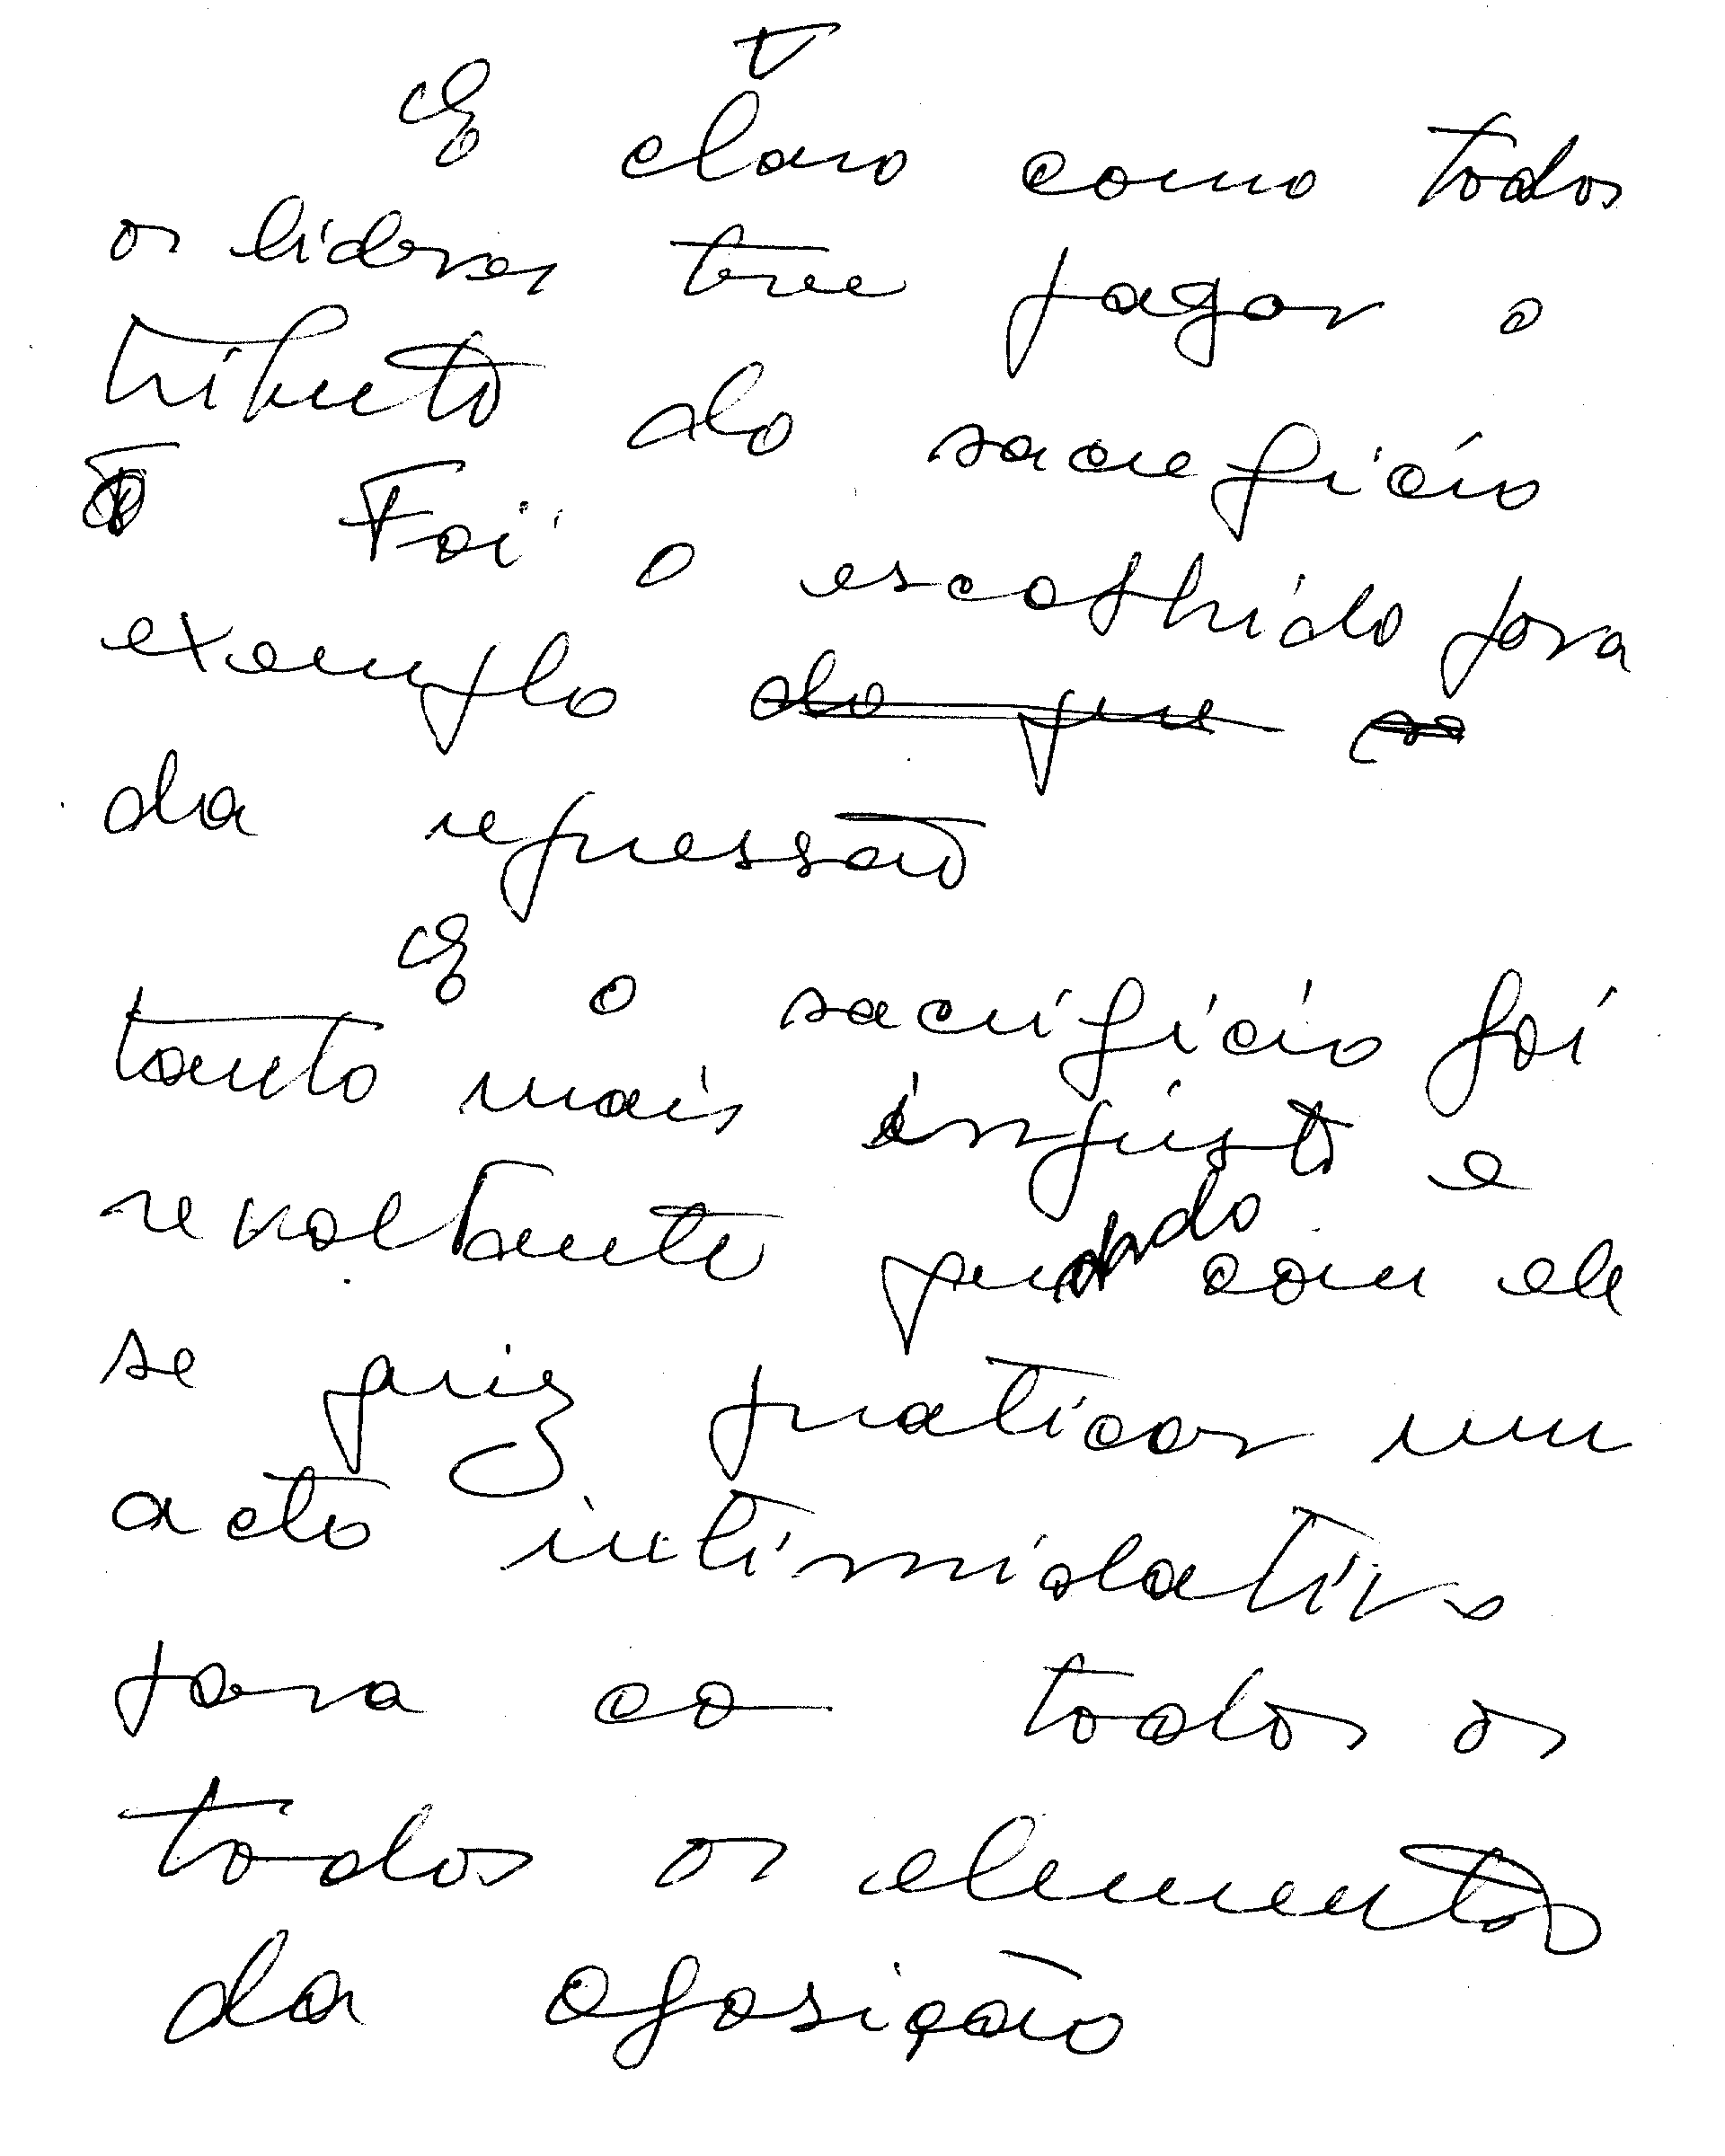 V
E claro como todos
os lideres teve pagar o
tributo do sacreficio
Foi o escolhido para
exemplo do que
da repressão
E o sacrificio foi
tanto mais injusto e
revoltante quando com ele
se quiz praticar um
acto intimidativo
para co todos os
todos os elementos
da oposição